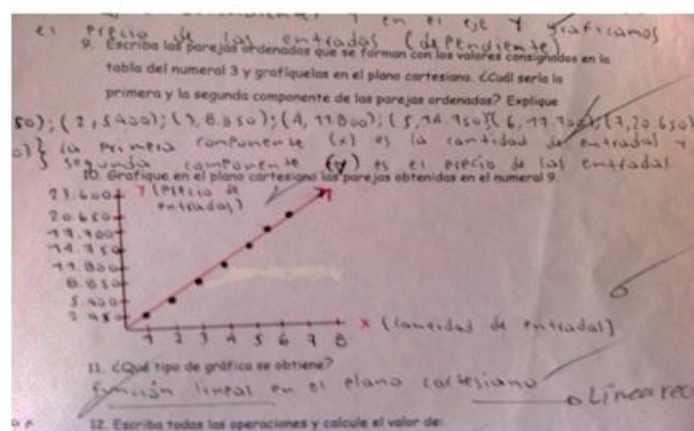 y en el eje y graficamos
el precio de las entradas (dependiente)
9. Escriba las parejas ordenadas que se forman con los valores consignados en la
tabla del numeral 3 y grafíquelas en el plano cartesiano. ¿Cuál sería la
primera y la segunda componente de las parejas ordenadas? Explique
50); (2, 5.900); (3, 8.850); (4, 11.800); (5, 14.750)( 6, 17.700); (7, 20.650)
0)} la primera componense (x) es la cantidad de entradas y
segunda componente (y) es el precio de las entradas
10. Grafique en el plano cartesiano las parejas obtenidas en el numeral 9.
23.600 Y (Precio de
20.650 entradas)
17.700
14.750
11.800
8.850
5.900
2.950
1 2 3 4 5 6 7 8 x (cantidad de entradas)
11. ¿Qué tipo de gráfica se obtiene?
función lineal en el plano cartesiano Línea rec
12. Escriba todas las operaciones y calcule el valor de: